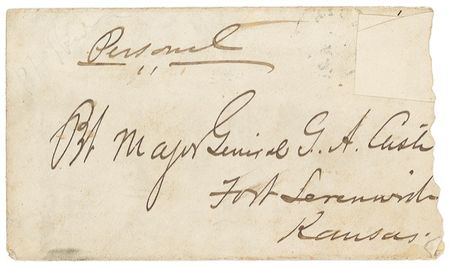 Personel
Bt Major General G. A. Custe
Fort Levenworth
Kansas.